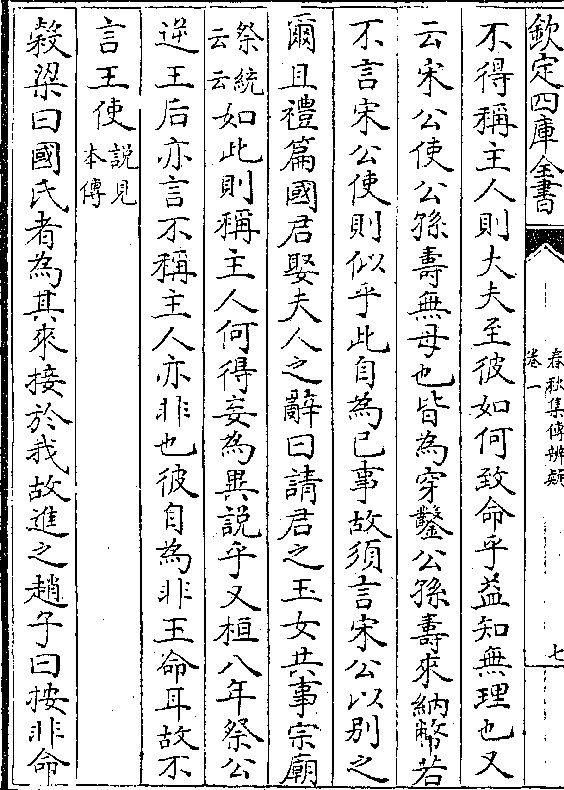 欽定四庫全書
春秋集傳辨疑
卷一
七
不得稱主人則大夫至彼如何致命乎益知無理也又
云宋公使公孫壽無母也皆為穿鑿公孫壽來納幣若
不言宋公使則似乎此自為已事故須言宋公以别之
爾且禮篇國君娶夫人之辭曰請君之玉女共事宗廟
祭統云云如此則稱主人何得妄為異說乎又桓八年祭公
逆王后亦言不稱主人亦非也彼自為非王命耳故不
言王使說見本傳
穀梁曰國氏者為其來接於我故進之趙子曰按非命